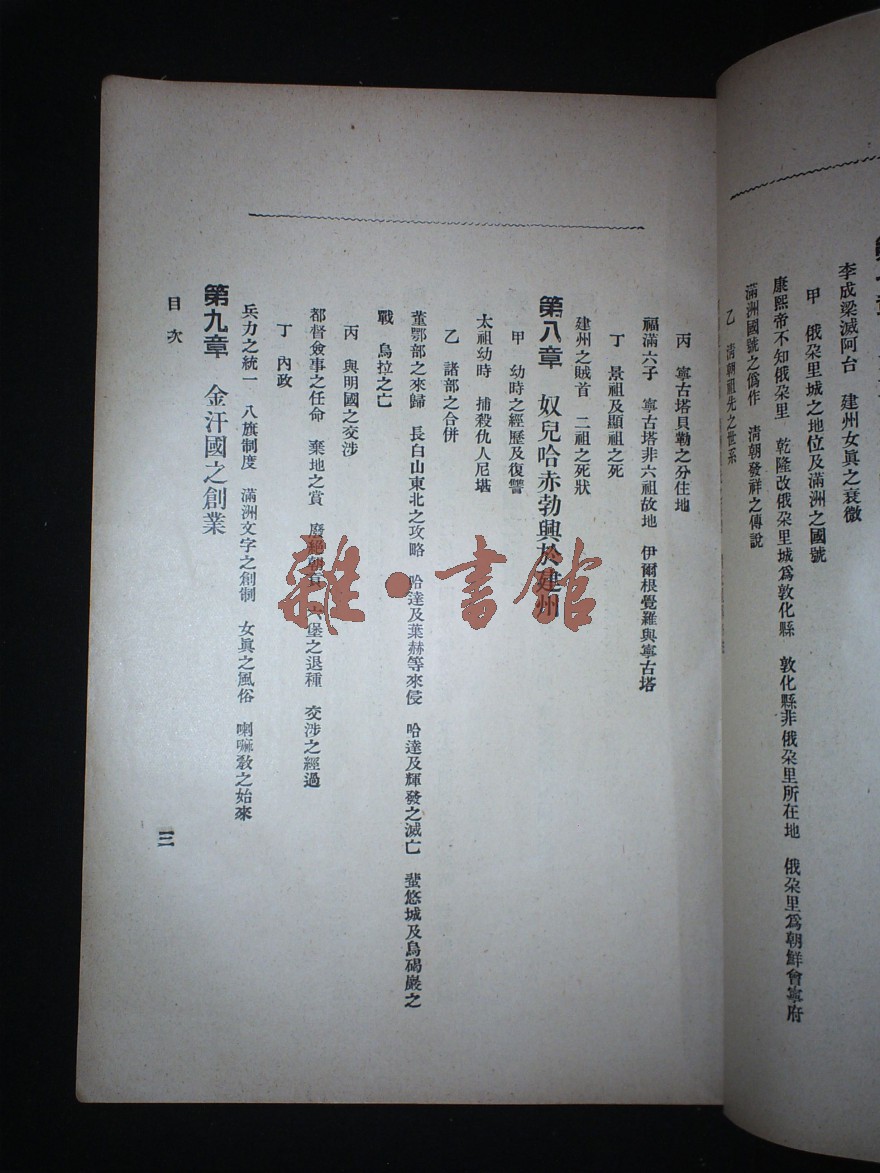 李成梁滅阿台　建州女眞之衰微
甲　俄朶里城之地位及滿洲之國號
康熙帝不知俄朶里　乾隆改俄朶里城爲敦化縣　敦化縣非俄朶里所在地　俄朶里爲朝鮮會寧府
滿洲國號之僞作　淸朝發祥之傳說
乙　淸朝祖先之世系
丙　寧古塔貝勒之分住地
福滿六子　寧古塔非六祖故地　伊爾根覺羅與寧古塔
丁　景祖及顯祖之死
建州之賊首　二祖之死狀
第八章　奴兒哈赤勃興於建州
甲　幼時之經歷及復讐
太祖幼時　捕殺仇人尼堪
乙　諸部之合併
董鄂部之來歸　長白山東北之攻略　哈達及葉赫等來侵　哈達及輝發之滅亡　蜚悠城及烏碣巖之
戰　烏拉之亡
丙　與明國之交涉
都督僉事之任命　棄地之賞　廢絕朝貢　六堡之退種　交涉之經過
丁　內政
兵力之統一　八旗制度　滿洲文字之創制　女眞之風俗　喇嘛敎之始來
第九章　金汗國之創業
目次
三
雜·書館